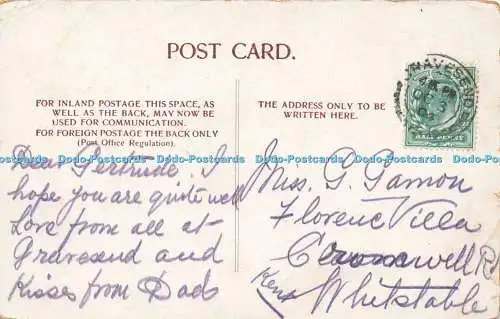 POST CARD.
FOR INLAND POSTAGE THIS SPACE, AS
WELL AS THE BACK, MAY NOW BE
USED FOR COMMUNICATION.
FOR FOREIGN POSTAGE THE BACK ONLY
(Post Office Regulation).
THE ADDRESS ONLY TO BE
WRITTEN HERE.
GRAVESEND
HALF PENNY
Dodo-Postcards Dodo-Postcards Dodo-Postcards Dodo-Postcards Dodo-Postcards
Dear Gertrude. I
hope you are quite well
Love from all at
Gravesend and
Kisses from Dad
Miss. G. Gamon
Florence Villa
Cromwell Rd
Kent Whitstable